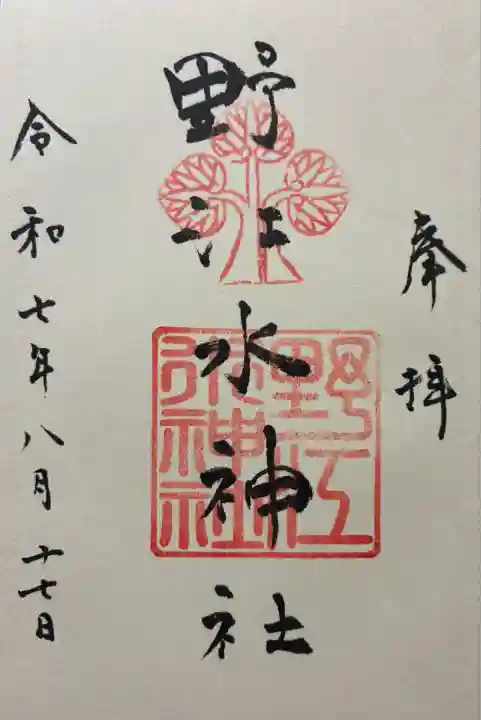 奉拝
野江水神社
野江水神社
令和七年八月十七日